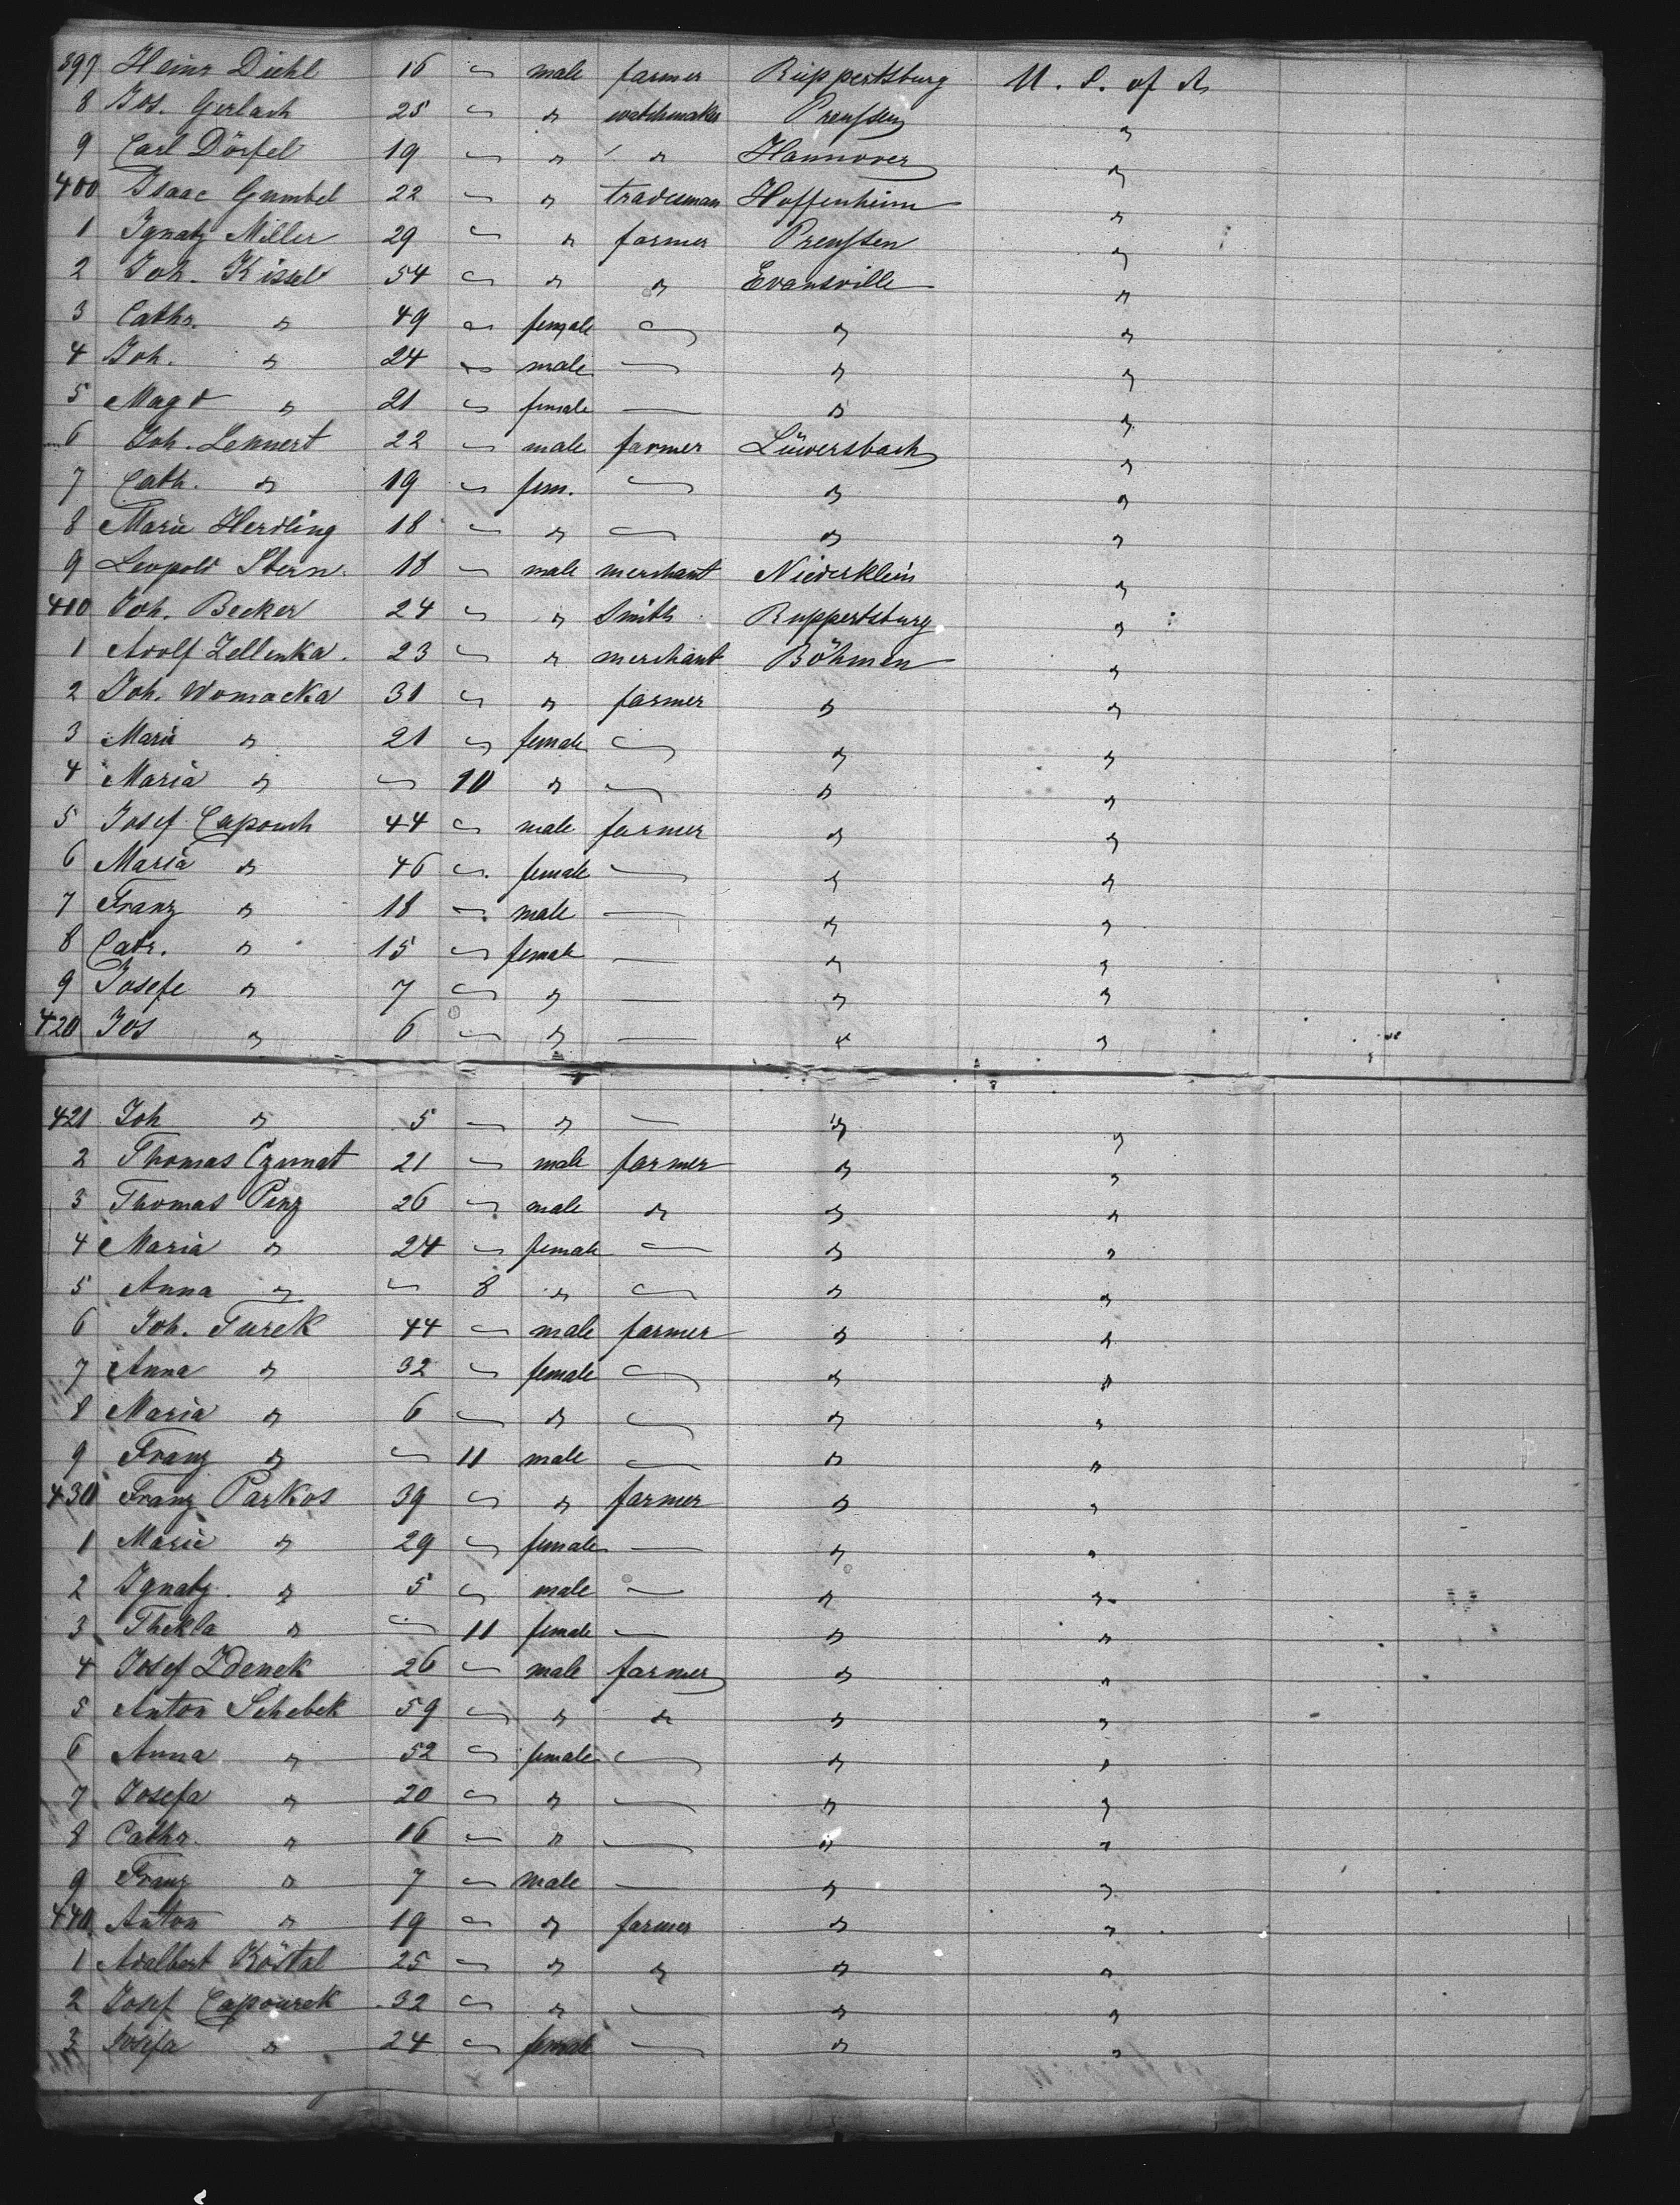 397 Heinr Diehl 16 — male farmer Ruppertsburg U. S. of A.
8 Jos. Gerlach 25 — " watchmaker Preussen "
9 Carl Dörfel 19 — " " Hannover "
400 Isaac Gumbel 22 — " tradesman Hoffenheim "
1 Ignatz Miller 29 — " farmer Preussen "
2 Joh. Kissel 54 — " " Evansville "
3 Cathr. " 49 — female — " "
4 Joh. " 24 — male — " "
5 Magd " 21 — female — " "
6 Joh. Lennert 22 — male farmer Lüwersbach "
7 Cath. " 19 — fem. — " "
8 Marie Herdling 18 — " — " "
9 Leopold Stern 18 — male merchant Niederklein "
410 Joh. Becker 24 — " Smith Ruppertsburg "
1 Adolf Zellenka 23 — " merchant Böhmen "
2 Joh. Womacka 31 — " farmer " "
3 Marie " 21 — female — " "
4 Maria " — 10 " — " "
5 Josef Capouch 44 — male farmer " "
6 Maria " 46 — female — " "
7 Franz " 18 — male — " "
8 Catr. " 15 — female — " "
9 Josefe " 7 — " — " "
420 Jos " 6 — " — " "
421 Joh " 5 — " — " "
2 Thomas Czunat 21 — male farmer " "
3 Thomas Pinz 26 — male " " "
4 Maria " 24 — female — " "
5 Anna " — 8 " — " "
6 Joh. Turek 44 — male farmer " "
7 Anna " 32 — female — " "
8 Maria " 6 — " — " "
9 Franz " — 11 male — " "
430 Franz Parkos 39 — " farmer " "
1 Marie " 29 — female — " "
2 Ignatz " 5 — male — " "
3 Thekla " — 11 female — " "
4 Josef Zdenek 26 — male farmer " "
5 Anton Schebek 59 — " " " "
6 Anna " 52 — female — " "
7 Josefa " 20 — " — " "
8 Cathr. " 16 — " — " "
9 Franz " 7 — male — " "
440 Anton " 19 — " farmer " "
1 Adalbert Köstal 25 — " " " "
2 Josef Capourek 32 — " — " "
3 Josefa " 24 — female — " "